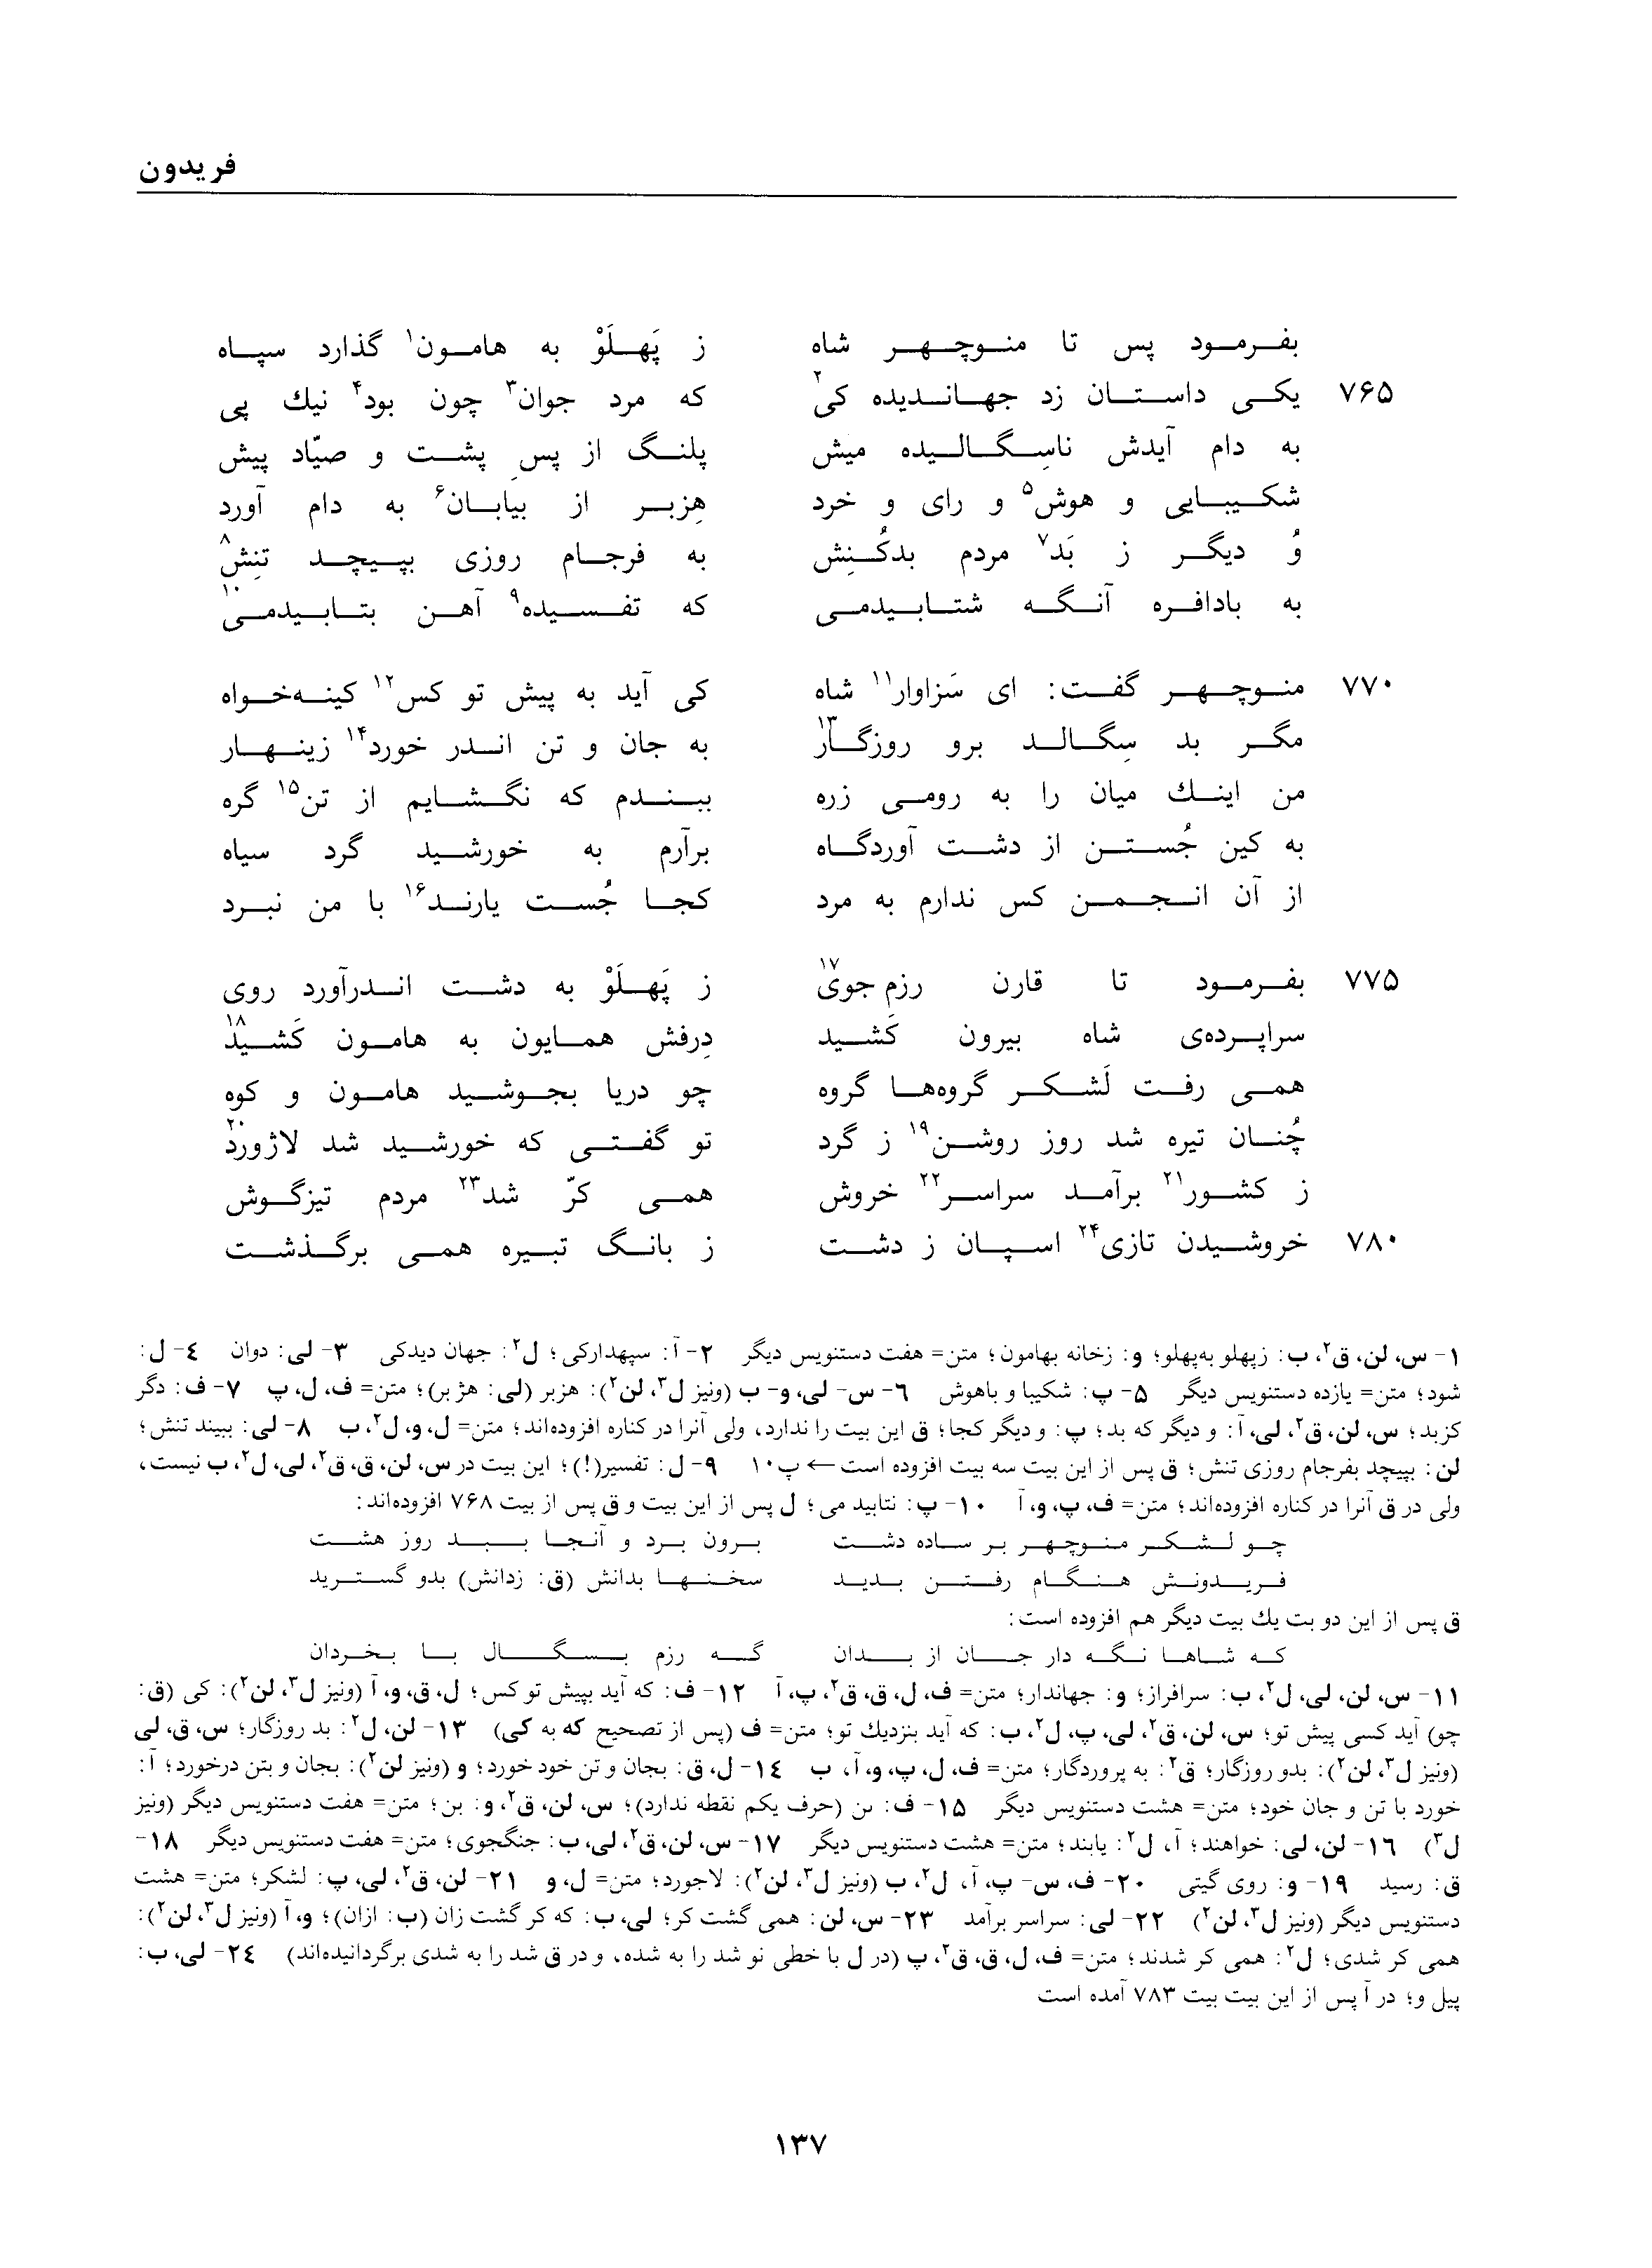 فریدون
بفرمود پس تا منوچهر شاه ز پَهلَوْ به هامون¹ گذارد سپاه
۷۶۵ یکی داستان زد جهاندیده کی² که مرد جوان³ چون بود⁴ نیك پی
به دام آیدش ناسِگالیده میش پلنگ از پسِ پشت و صیّاد پیش
شکیبایی و هوش⁵ و رای و خرد هِزبر از بیابان⁶ به دام آورد
وُ دیگر ز بَد⁷ مردم بدکُنِش به فرجام روزی بپیچد تنِش⁸
به بادافره آنگه شتابیدمی که تفسیده⁹ آهن بتابیدمی¹⁰
۷۷۰ منوچهر گفت: ای سَزاوار¹¹ شاه کی آید به پیش تو کس¹² کینه‌خواه
مگر بد سِگالد برو روزگار¹³ به جان و تن اندر خورد¹⁴ زینهار
من اینك میان را به رومی زره ببندم که نگشایم از تن¹⁵ گره
به کین جُستن از دشت آوردگاه برآرم به خورشید گرد سیاه
از آن انجمن کس ندارم به مرد کجا جُست یارند¹⁶ با من نبرد
۷۷۵ بفرمود تا قارن رزم جوی¹⁷ ز پَهلَوْ به دشت اندرآورد روی
سراپرده‌ی شاه بیرون کَشید دِرفش همایون به هامون کَشید¹⁸
همی رفت لَشکر گروه‌ها گروه چو دریا بجوشید هامون و کوه
چُنان تیره شد روز روشن¹⁹ ز گرد تو گفتی که خورشید شد لاژورد²⁰
ز کشور²¹ برآمد سراسر²² خروش همی کرّ شد²³ مردم تیزگوش
۷۸۰ خروشیدن تازی²⁴ اسپان ز دشت ز بانگ تبیره همی برگذشت
۱- س، لن، ق²، ب: زپهلو به‌پهلو؛ و: زخانه بهامون؛ متن= هفت دستنویس دیگر ۲- آ: سپهدارکی؛ ل²: جهان دیدکی ۳- لی: دوان ٤- ل:
شود؛ متن= یازده دستنویس دیگر ۵- پ: شکیبا و باهوش ٦- س- لی، و- ب (ونیز ل³، لن²): هزبر (لی: هژبر)؛ متن= ف، ل، پ ۷- ف: دگر
کزبد؛ س، لن، ق²، لی، آ: و دیگر که بد؛ پ: و دیگر کجا؛ ق این بیت را ندارد، ولی آنرا در کناره افزوده‌اند؛ متن= ل، و، ل²، ب ۸- لی: ببیند تنش؛
لن: بپیچد بفرجام روزی تنش؛ ق پس از این بیت سه بیت افزوده است ← پ۱۰ ۹- ل: تفسیر(!)؛ این بیت در س، لن، ق، ق²، لی، ل²، ب نیست،
ولی در ق آنرا در کناره افزوده‌اند؛ متن= ف، پ، و، آ ۱۰- پ: نتابید می؛ ل پس از این بیت و ق پس از بیت ۷۶۸ افزوده‌اند:
چو لشکر منوچهر بر ساده دشت برون برد و آنجا ببد روز هشت
فریدونش هنگام رفتن بدید سخنها بدانش (ق: زدانش) بدو گسترید
ق پس از این دو بت یك بیت دیگر هم افزوده است:
که شاها نگه دار جان از بدان گه رزم بسگال با بخردان
۱۱- س، لن، لی، ل²، ب: سرافراز؛ و: جهاندار؛ متن= ف، ل، ق، ق²، پ، آ ۱۲- ف: که آید بپیش تو کس؛ ل، ق، و، آ (ونیز ل³، لن²): کی (ق:
چو) آید کسی پیش تو؛ س، لن، ق²، لی، پ، ل²، ب: که آید بنزدیك تو؛ متن= ف (پس از تصحیح که به کی) ۱۳- لن، ل²: بد روزگار؛ س، ق، لی
(ونیز ل³، لن²): بدو روزگار؛ ق²: به پروردگار؛ متن= ف، ل، پ، و، آ، ب ۱٤- ل، ق: بجان و تن خود خورد؛ و (ونیز لن²): بجان و بتن درخورد؛ آ:
خورد با تن و جان خود؛ متن= هشت دستنویس دیگر ۱۵- ف: ٮں (حرف یکم نقطه ندارد)؛ س، لن، ق²، و: بن؛ متن= هفت دستنویس دیگر (ونیز
ل³) ۱٦- لن، لی: خواهند؛ آ، ل²: یابند؛ متن= هشت دستنویس دیگر ۱۷- س، لن، ق²، لی، ب: جنگجوی؛ متن= هفت دستنویس دیگر ۱۸-
ق: رسید ۱۹- و: روی گیتی ۲۰- ف، س- پ، آ، ل²، ب (ونیز ل³، لن²): لاجورد؛ متن= ل، و ۲۱- لن، ق²، لی، پ: لشکر؛ متن= هشت
دستنویس دیگر (ونیز ل³، لن²) ۲۲- لی: سراسر برآمد ۲۳- س، لن: همی گشت کر؛ لی، ب: که کر گشت زان (ب: ازان)؛ و، آ (ونیز ل³، لن²):
همی کر شدی؛ ل²: همی کر شدند؛ متن= ف، ل، ق، ق²، پ (در ل با خطی نو شد را به شده، و در ق شد را به شدی برگردانیده‌اند) ۲٤- لی، ب:
پیل و؛ در آ پس از این بیت بیت ۷۸۳ آمده است
۱۳۷